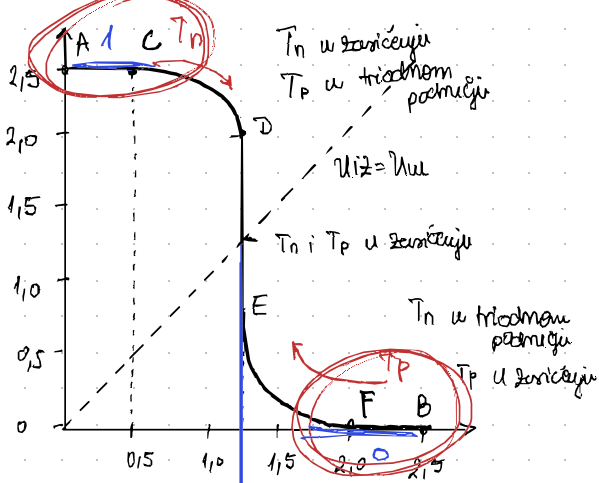 A 1 C Tn
Tn u zasićenju
Tp u triodnom
području
2,5
2,0
D
1,5
Uiz = Uul
Tn i Tp u zasićenju
1,0
E
Tn u triodnom
području
0,5
Tp
Tp u zasićenju
F B
0
0,5 1,0 1,5 2,0 0 2,5